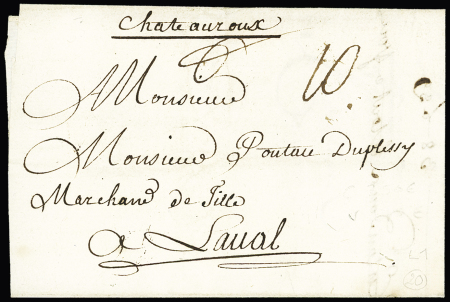 Chateauroux
10
Monsieur
Monsieur Pontau Duplessy
Marchand de Tille
a Laval